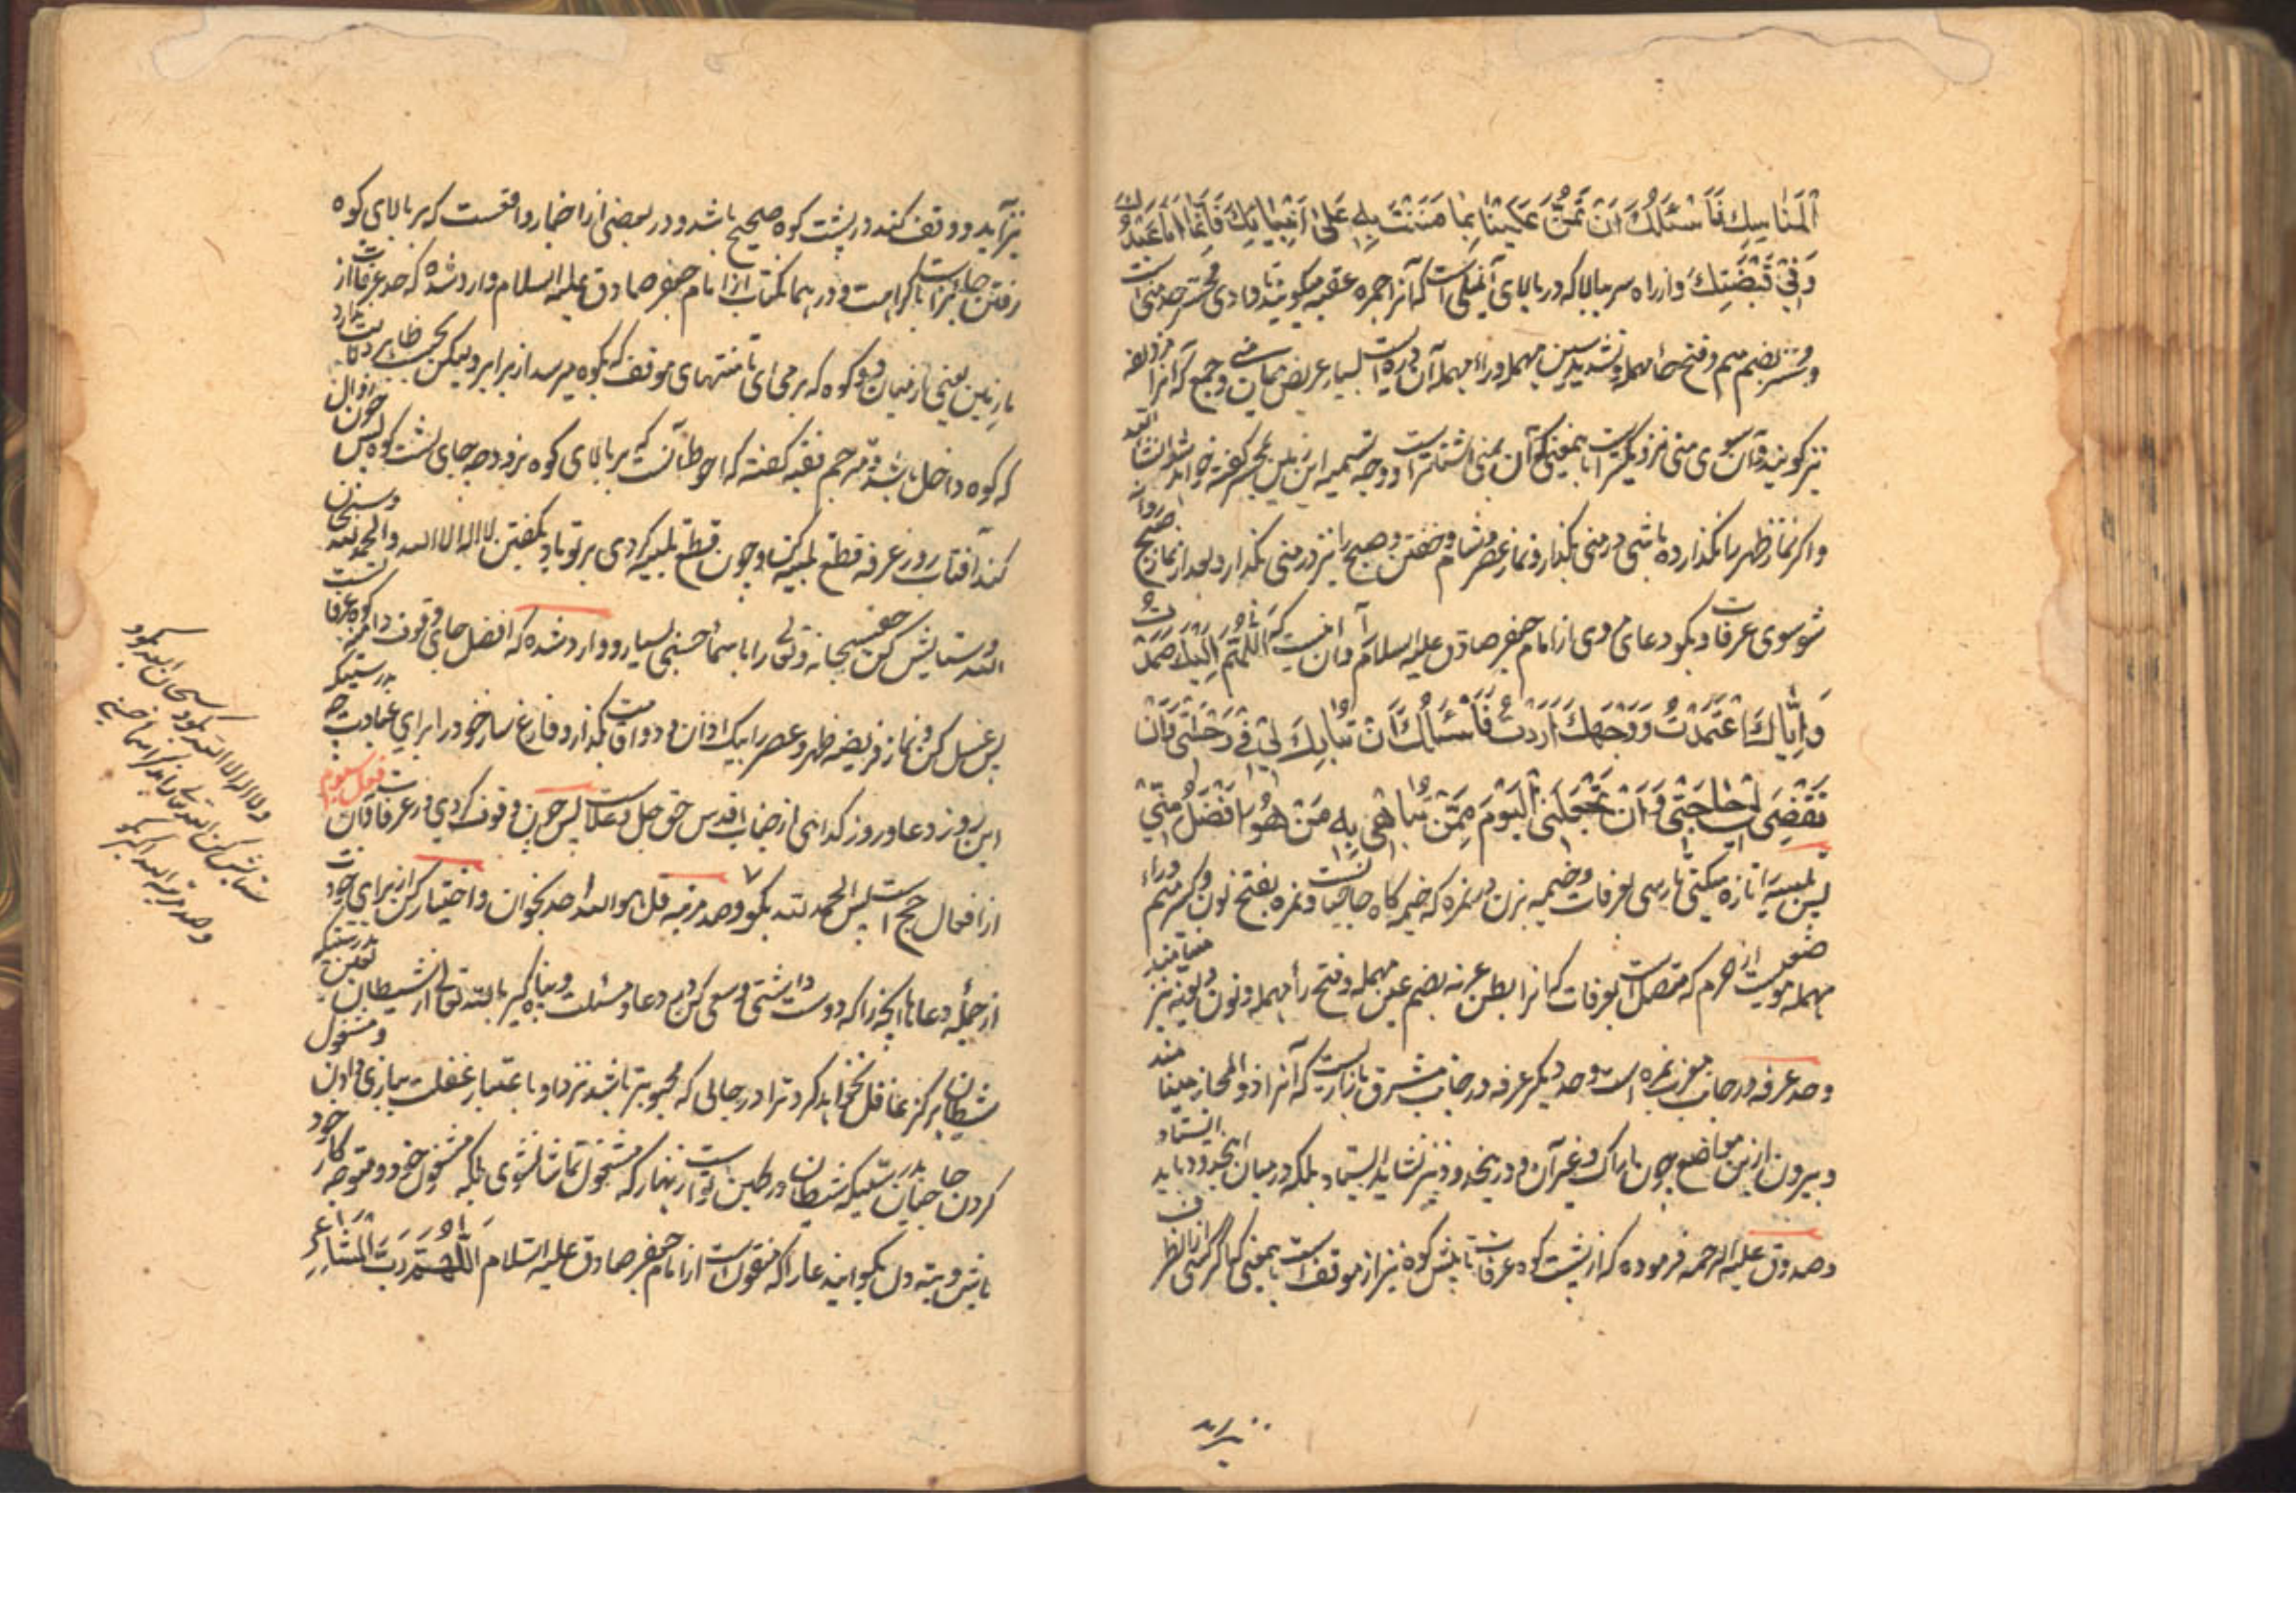 الْمَناسِكِ فَاَسْئَلُكَ اَنْ تَمُنَّ عَلَيْنا بِما مَنَنْتَ بِهِ عَلى اَنْبِيائِكَ فَاِنَّما اَنَا عَبْدُكَ
وَفي قَبْضَتِكَ و از راه سر ببالا که در بالای است که آنرا جمره عقبه میگویند تا وادی محسر حد منی است
و محسر بضم میم و فتح حاء مهمله و تشدید سین مهمله و راء مهمله آن دره است بسیار عریض میان منی و جمع که آنرا مزدلفه
نیز گویند و آن سوی منی نزدیکتر است بمعنی که آن بمنی اشتهار است و وجه تسمیه این زمین بمحسر گفته خواهد شد ان شاء الله
و اگر نماز ظهر را نگذارده باشی در منی بگذار و نماز عصر و شام و خفتن و صبح را نیز در منی بگذار و بعد از نماز صبح روانه
شو سوی عرفات و بگو دعای مروی از امام جعفر صادق علیه السلام و آن اینست که اَللّهُمَّ اِلَيْكَ صَمَدْتُ
وَاِيّاكَ اعْتَمَدْتُ وَوَجْهَكَ اَرَدْتُ فَاَسْئَلُكَ اَنْ تُبارِكَ لي في رِحْلَتي وَاَنْ
تَقْضِيَ لي حاجَتي وَاَنْ تَجْعَلَنِي الْيَوْمَ مِمَّنْ تُباهي بِهِ مَنْ هُوَ اَفْضَلُ مِنّي
پس تلبیه را تازه میکنی تا رسی بعرفات و خیمه بزن در نمره که خیمه کاه حاجیانست و نمره بفتح نون و کسر میم و راء
مهمله موضعیست از حرم که متصل است بعرفات که آنرا بطن عرنه بضم عین مهمله و فتح راء مهمله و نون و نیز مینامند
و حد عرفه در جانب مغرب نمره است و حد دیگر عرفه در جانب مشرق بازاریست که آنرا ذو المجاز مینامند
و بیرون ازین مواضع چون اراک و غیر آن و در نیز نشاید ایستاد بلکه در میان این حدود باید ایستاد
و صدوق علیه الرحمه فرموده که از پشت کوه عرفات تا پیش کوه نیز از موقف است بمعنی که اگر کسی از آن طرف
نیز آید و وقوف کند در پشت کوه صحیح باشد و در بعضی از اخبار واقعست که بر بالای کوه
رفتن جایز است با کراهت و در همان کتاب از امام جعفر صادق علیه السلام وارد شده که حد عرفات از
مازمین یعنی از میان دو کوه که بر می آئی تا منتهای موقف که بکوه میرسد از برابر و لیکن بحسب ظاهر دلالت ندارد
که کوه داخل باشد و مترجم فقیه گفته که احوط آنست که بر بالای کوه نرود و جه جای پشت کوه پس چون زوال
کند آفتاب روز عرفه قطع تلبیه کن و چون قطع تلبیه کردی بر تو باد بگفتن لا اله الا الله و الحمد لله و سبحان
الله و ستایش کن حق سبحانه و تعالی را باسماء حسنی بسیار و وارد شده که افضل جای وقوف دامن کوه عرفاتست
پس غسل کن و نماز فریضه ظهر و عصر را بیک اذان و دو اقامت بگذار و فارغ ساز خود را برای عبادت چه بدرستیکه
این روز دعا و روز گدائی از جناب اقدس حق جل و علاست پس چون وقوف کردی در عرفات و آن فعل سیوم
از افعال حج است پس الحمد لله بگو و صد مرتبه قل هو الله احد بخوان و اختیار کن از برای خود
از جمله دعاها آنچه را که دوست داشتی و سعی کن در دعا و مسئلت و پناه گیر بالله تعالی از شیطان لعین بدرستیکه
شیطان هرگز غافل نخواهد کرد ترا در جائی که محبوبتر باشد نزد او باعتبار غفلت و مشغول
کردن حاجیان بدرستیکه شیطان در کمین تو است زنهار که مشغول تماشا نشوی بلکه مشغول خود و متوجه کار خود
باش و بته دل بگو این دعا را که منقولست از امام جعفر صادق علیه السلام اَللّهُمَّ رَبَّ الْمَشاعِرِ
و لا اله الا الله بگو و سبحان الله بگو
و صد مرتبه الله اکبر بگو